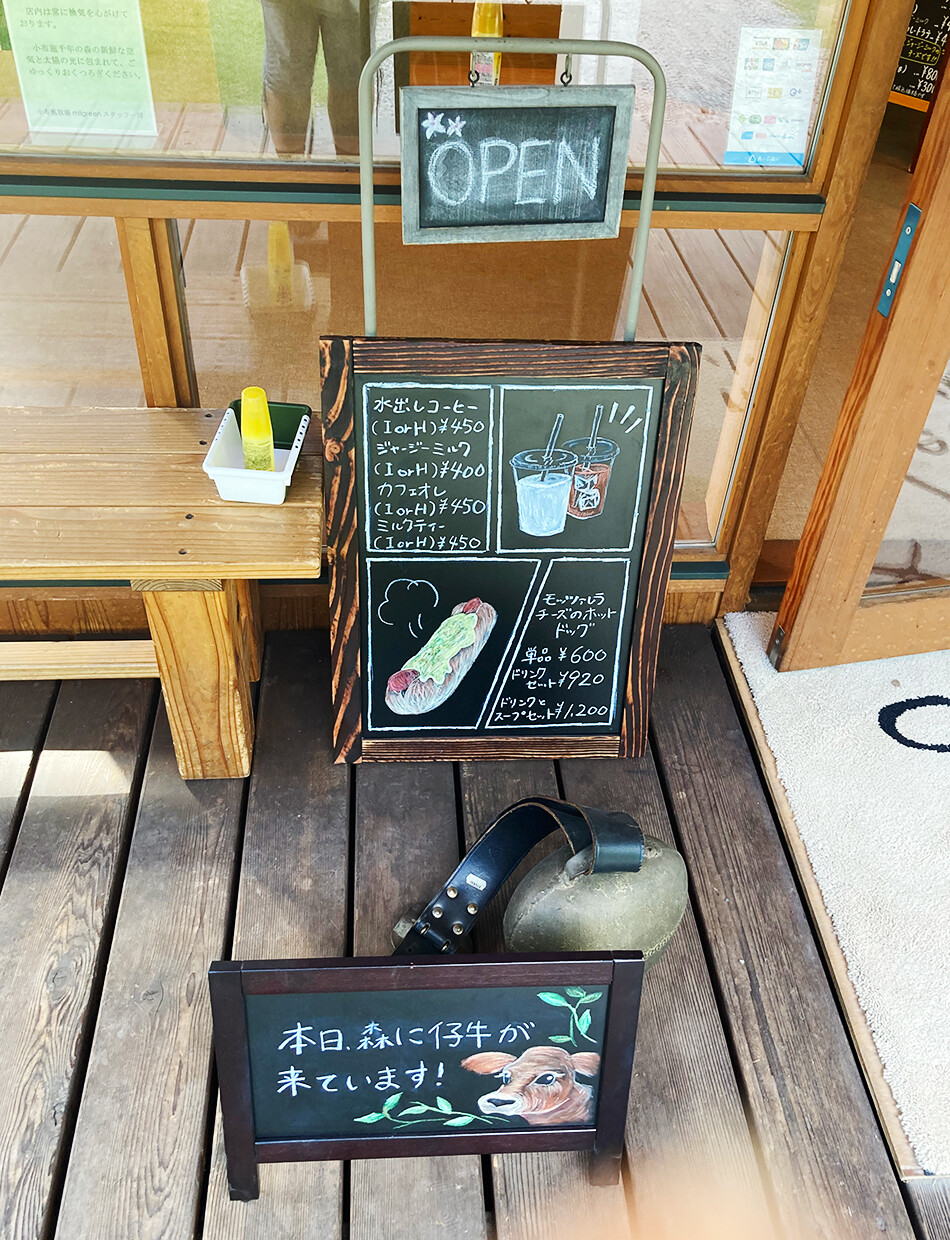 店内は常に換気を心がけて
おります。
小岩
千年の森の新鮮な空
気と太陽の光に包まれて、ご
ゆっくりおくつろぎください。
milgreen スタッフ一同
OPEN
水出しコーヒー
(IorH)¥450
ジャージーミルク
(IorH)¥400
カフェオレ
(IorH)¥450
ミルクティー
(IorH)¥450
モッツァレラ
チーズのホット
ドッグ
単品 ¥600
ドリンク
セット ¥920
ドリンクと
スープセット ¥1,200
本日、森に仔牛が
来ています!